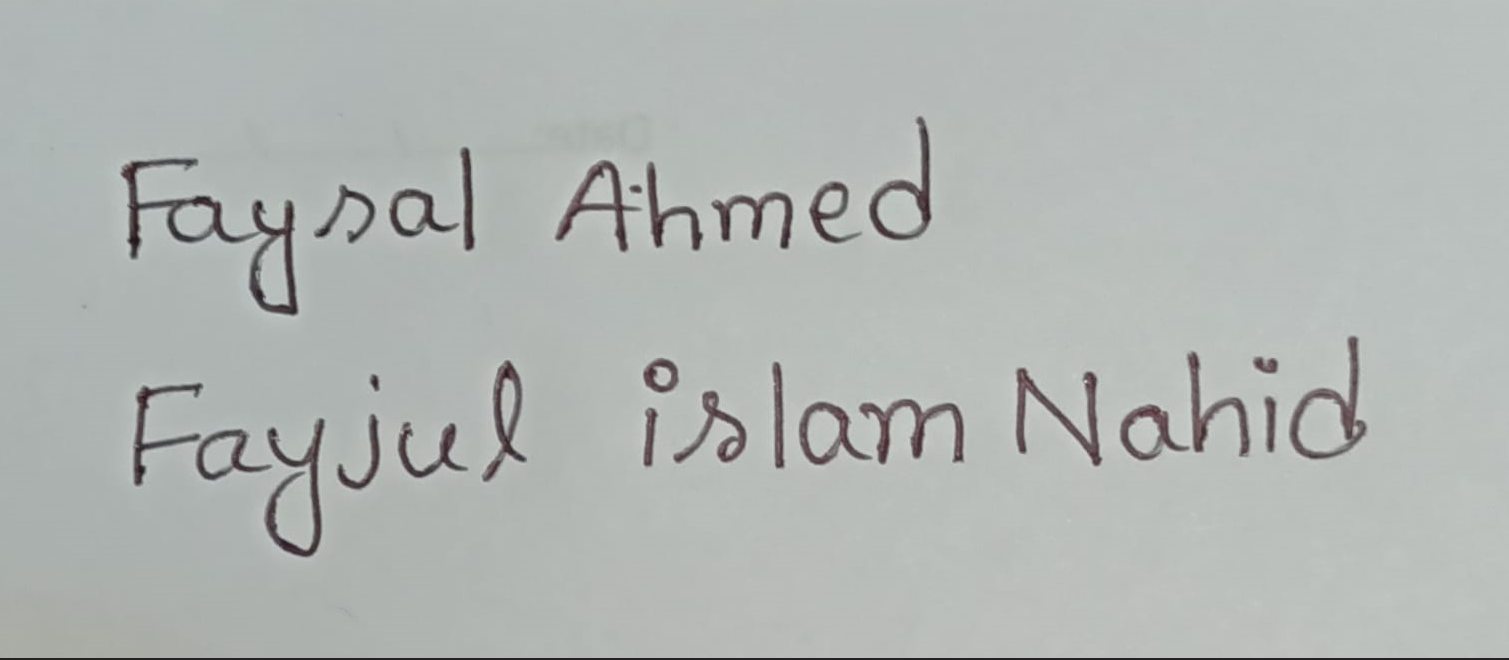 Faysal Ahmed
Fayjul islam Nahid